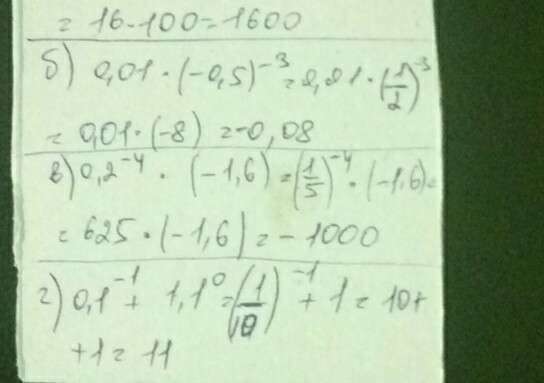 = 16 · 100 = 1600
б) 0,01 · (-0,5)⁻³ = 0,01 · (1/2)⁻³
= 0,01 · (-8) = -0,08
в) 0,2⁻⁴ · (-1,6) = (1/5)⁻⁴ · (-1,6) =
= 625 · (-1,6) = -1000
г) 0,1⁻¹ + 1,1⁰ = (1/10)⁻¹ + 1 = 10 +
+ 1 = 11